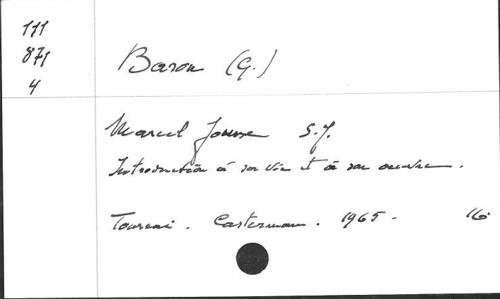 111
871
4
Baron (G.)
Marcel Jousse S.J.
Introduction à sa vie et à son oeuvre.
Tournai. Casterman. 1965. 16°